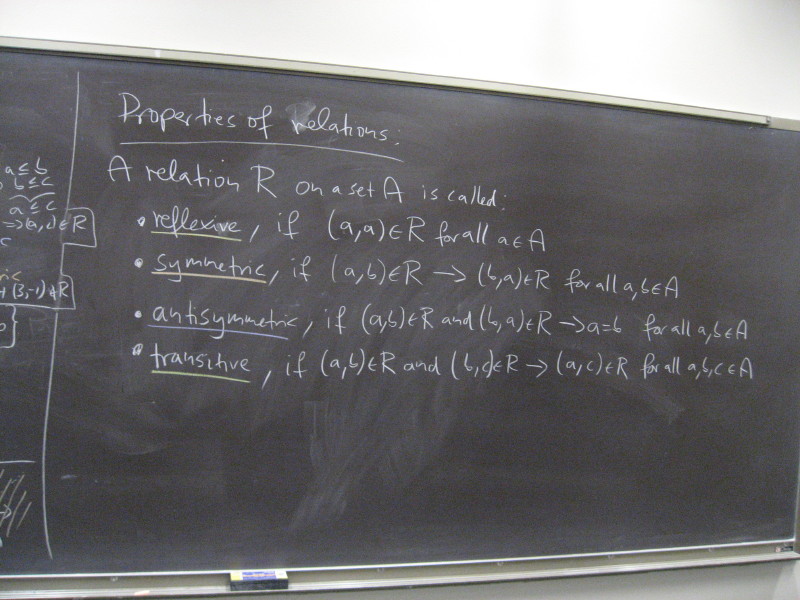 a≤b
b≤c
a≤c
⇒(a,c)∈R
c
ric
(3,-1)∉R
Properties of relations:
A relation R on a set A is called:
• reflexive, if (a,a)∈R for all a∈A
• symmetric, if (a,b)∈R → (b,a)∈R for all a,b∈A
• antisymmetric, if (a,b)∈R and (b,a)∈R → a=b for all a,b∈A
• transitive, if (a,b)∈R and (b,c)∈R → (a,c)∈R for all a,b,c∈A